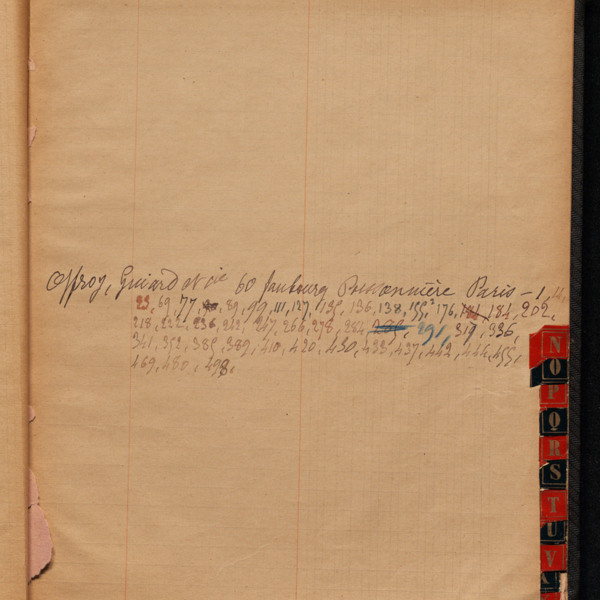 Offroy, Guiard et cie 60 faubourg Poissonnière Paris – 1, 14,
23, 69, 77, 89, 99, 111, 127, 135, 136, 138, 155, 176, 184, 202,
218, 222, 236, 242, 247, 266, 278, 284, 291, 319, 336,
341, 352, 385, 389, 410, 420, 430, 433, 437, 442, 444, 455,
469, 480, 498,
N
O
P
Q
R
S
T
U
V